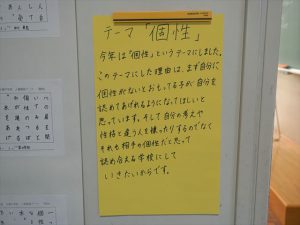 テーマ「個性」
今年は"個性"というテーマにしました。
このテーマにした理由は、まず自分に
個性がないとおもってる子が自分を
認めてあげれるようになってほしいと
思っています。そして自分の考えや
性格と違う人を嫌ったりするのでなく
それも相手の個性だと思って
認め合える学校にして
いきたいからです。